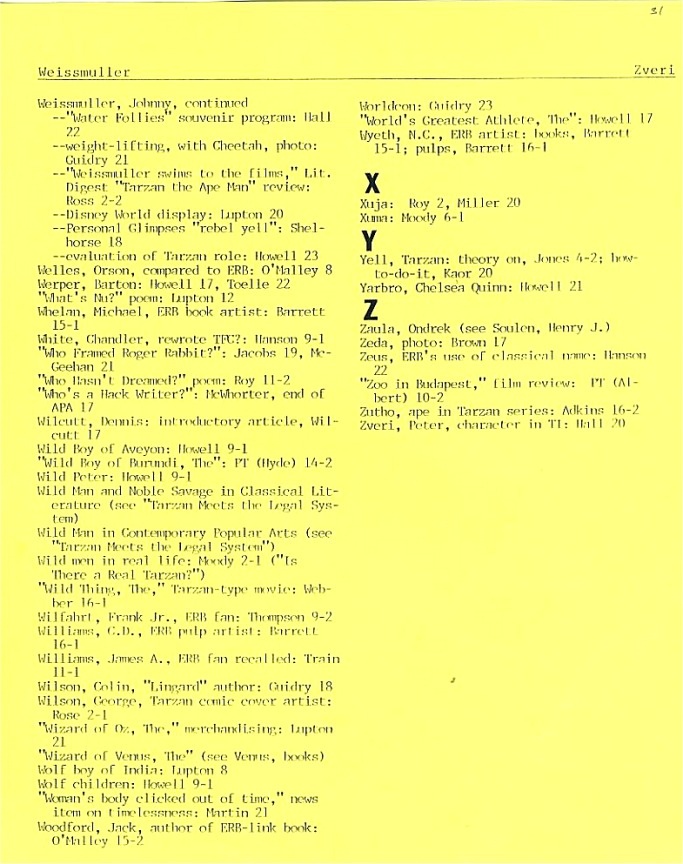 31
Weissmuller Zveri
Weissmuller, Johnny, continued
--"Water Follies" souvenir program: Hall
22
--weight-lifting, with Cheetah, photo:
Guidry 21
--"Weissmuller swims to the films," Lit.
Digest "Tarzan the Ape Man" review:
Ross 2-2
--Disney World display: Lupton 20
--Personal Glimpses "rebel yell": Shel-
horse 18
--evaluation of Tarzan role: Howell 23
Welles, Orson, compared to ERB: O'Malley 8
Werper, Barton: Howell 17, Toelle 22
"What's Nu?" poem: Lupton 12
Whelan, Michael, ERB book artist: Barrett
15-1
White, Chandler, rewrote TFC?: Hanson 9-1
"Who Framed Roger Rabbit?": Jacobs 19, Mc-
Geehan 21
"Who Hasn't Dreamed?" poem: Roy 11-2
"Who's a Hack Writer?": McWhorter, end of
APA 17
Wilcutt, Dennis: introductory article, Wil-
cutt 17
Wild Boy of Aveyon: Howell 9-1
"Wild Boy of Burundi, The": PT (Hyde) 14-2
Wild Peter: Howell 9-1
Wild Man and Noble Savage in Classical Lit-
erature (see "Tarzan Meets the Legal Sys-
tem)
Wild Man in Contemporary Popular Arts (see
"Tarzan Meets the Legal System")
Wild men in real life: Moody 2-1 ("Is
There a Real Tarzan?")
"Wild Thing, The," Tarzan-type movie: Web-
ber 16-1
Wilfahrt, Frank Jr., ERB fan: Thompson 9-2
Williams, C.D., ERB pulp artist: Barrett
16-1
Williams, James A., ERB fan recalled: Train
11-1
Wilson, Colin, "Lingard" author: Guidry 18
Wilson, George, Tarzan comic cover artist:
Rose 2-1
"Wizard of Oz, The," merchandising: Lupton
21
"Wizard of Venus, The" (see Venus, books)
Wolf boy of India: Lupton 8
Wolf children: Howell 9-1
"Woman's body clicked out of time," news
item on timelessness: Martin 21
Woodford, Jack, author of ERB-link book:
O'Malley 15-2
Worldcon: Guidry 23
"World's Greatest Athlete, The": Howell 17
Wyeth, N.C., ERB artist: books, Barrett
15-1; pulps, Barrett 16-1
X
Xuja: Roy 2, Miller 20
Xuma: Moody 6-1
Y
Yell, Tarzan: theory on, Jones 4-2; how-
to-do-it, Kaor 20
Yarbro, Chelsea Quinn: Howell 21
Z
Zaula, Ondrek (see Soulen, Henry J.)
Zeda, photo: Brown 17
Zeus, ERB's use of classical name: Hanson
22
"Zoo in Budapest," film review: PT (Al-
bert) 10-2
Zutho, ape in Tarzan series: Adkins 16-2
Zveri, Peter, character in TI: Hall 20